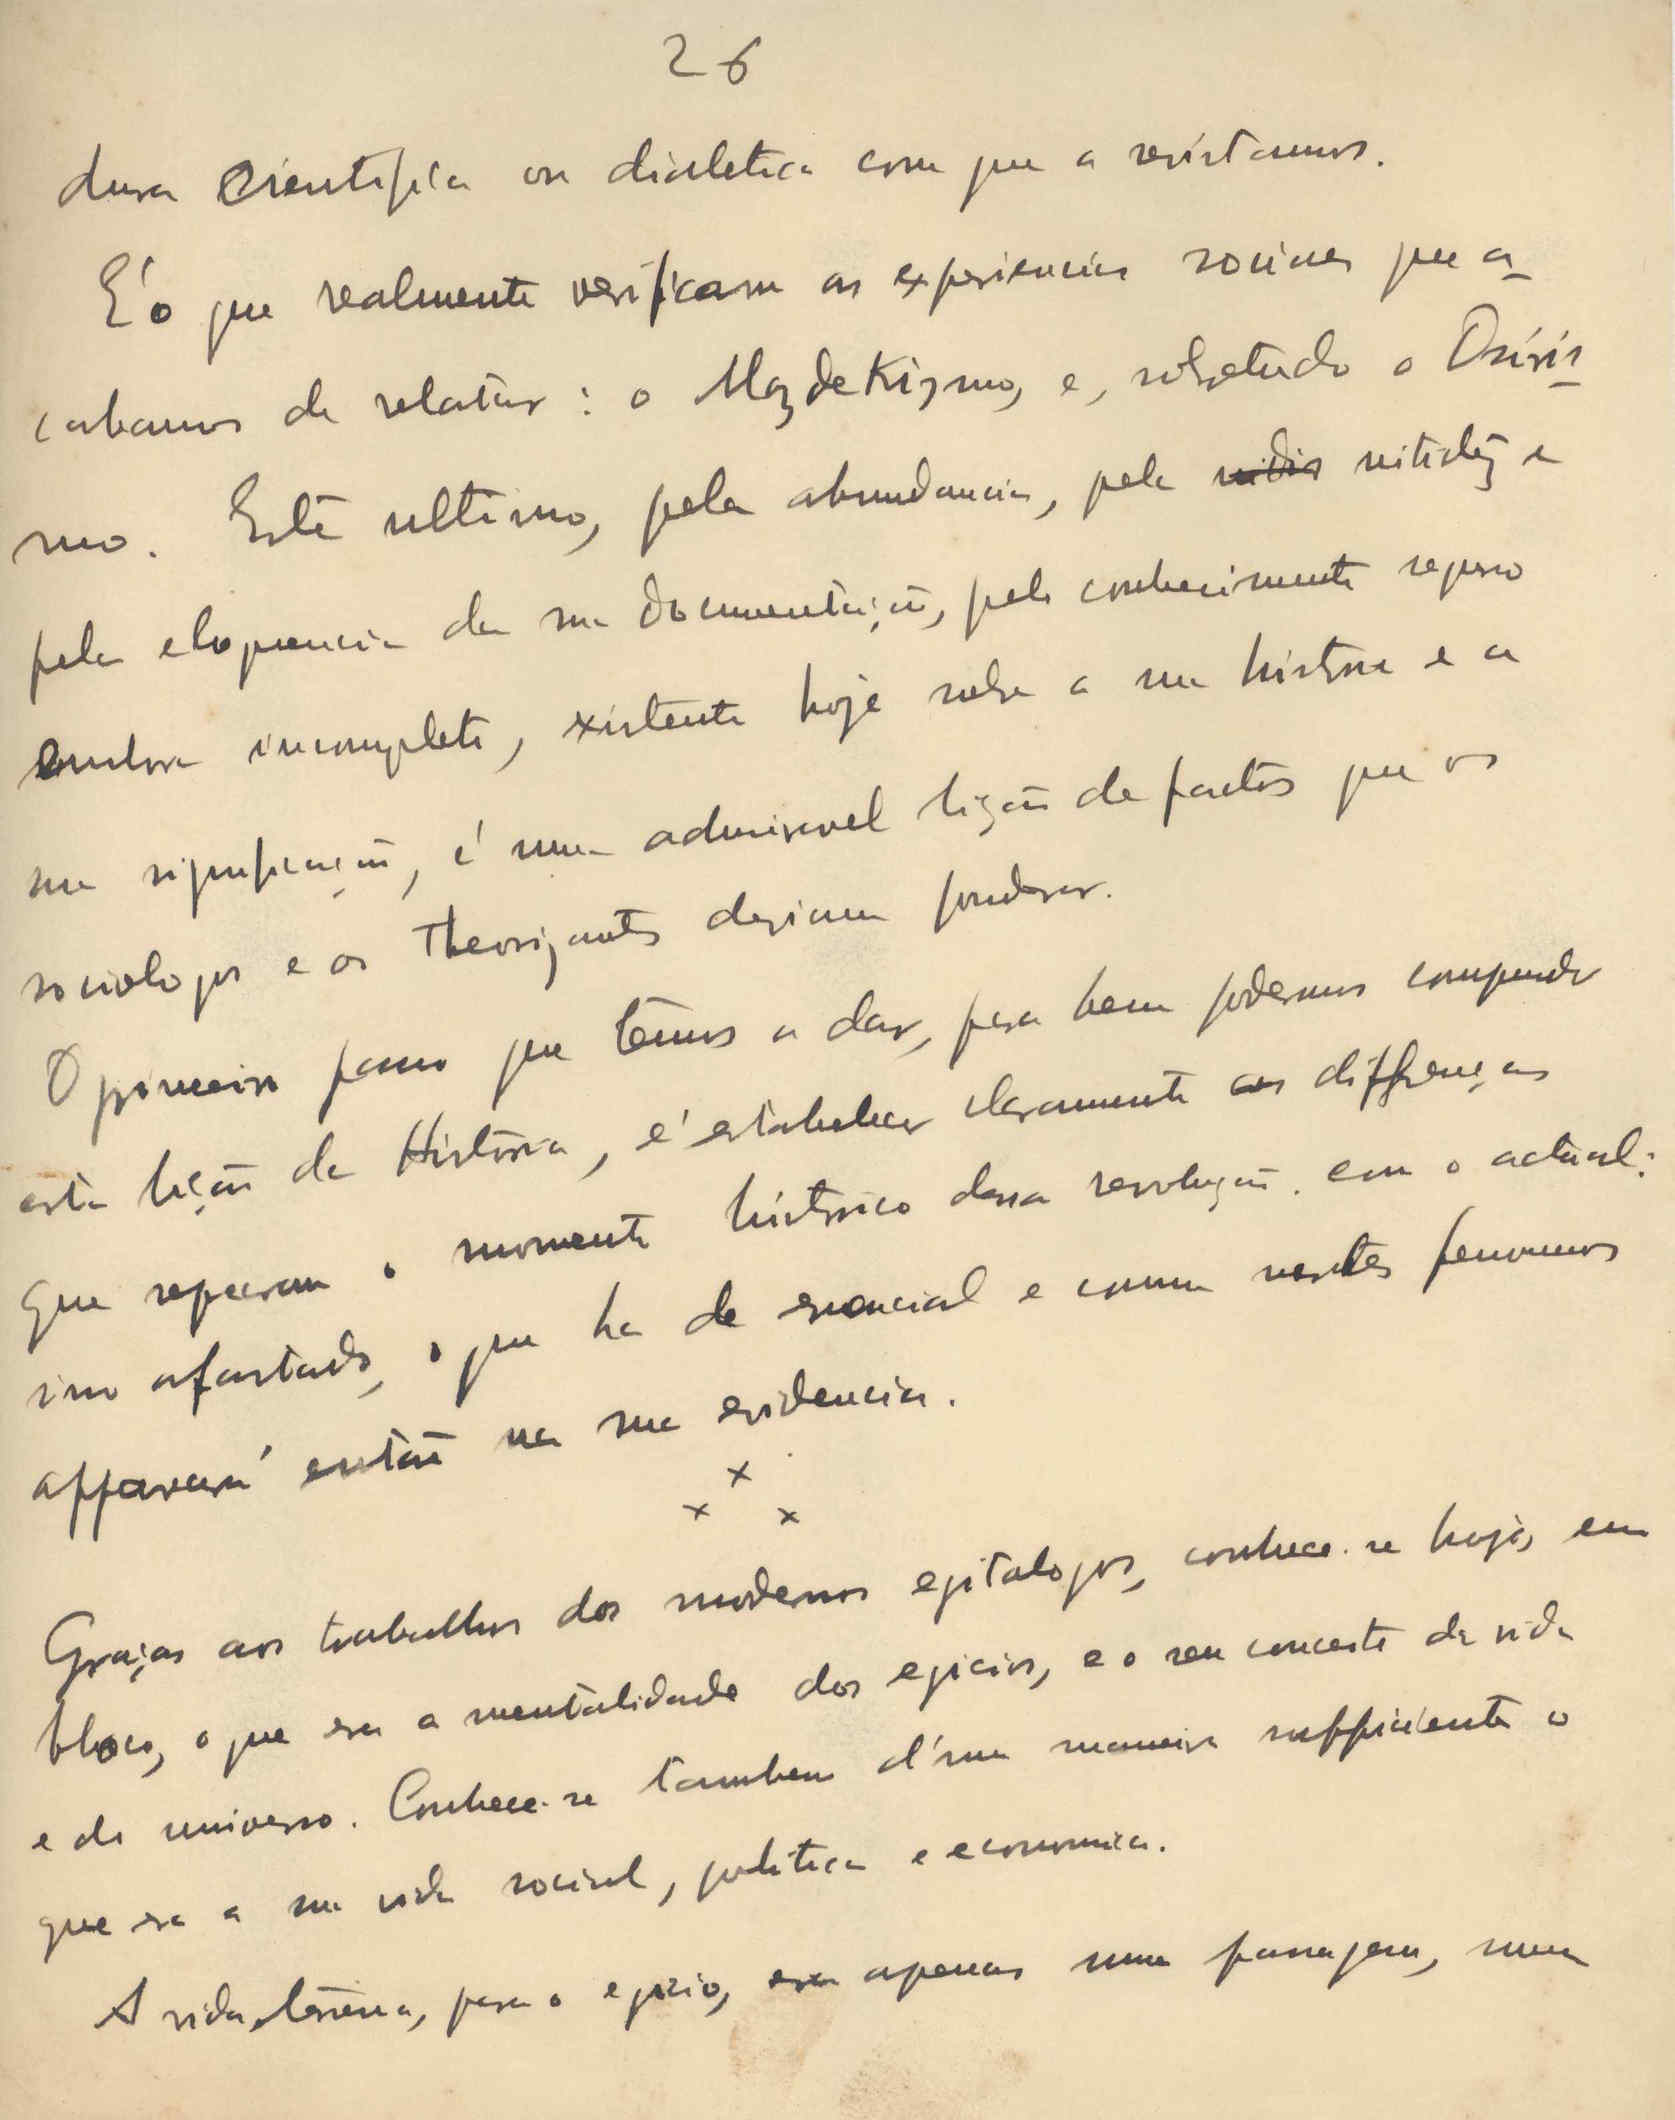 26
dura cientifica ou dialetica com que a revistamos.
É o que realmente verificam as experiencias sociaes que a-
cabamos de relatar: o Mazdekizmo, e, sobretudo o Osiris-
mo. Este ultimo, pela abundancia, pela nitidez e
pela eloquencia da sua documentação, pelo conhecimento seguro
embora incompleto, existente hoje sobre a sua historia e a
sua significação, é uma admiravel lição de factos que os
sociologos e os theorizantes deviam ponderar.
O primeiro passo que têmos a dar, para bem podermos comprender
esta lição da Historia, é estabelecer claramente as differenças
que separam o momento histórico dessa revolução com o actual:
isso afastado, o que ha de essencial e comum nestes fenomenos
apparecerá então na sua evidencia.
x
x x
Graças aos trabalhos dos modernos egitologos, conhece-se hoje, em
bloco, o que era a mentalidade dos egicios, e o seu conceito da vida
e do universo. Conhece-se tambem d'uma maneira sufficiente o
que era a sua vida social, politica e economica.
A vida terrena, para o egicio, era apenas uma passagem, uma